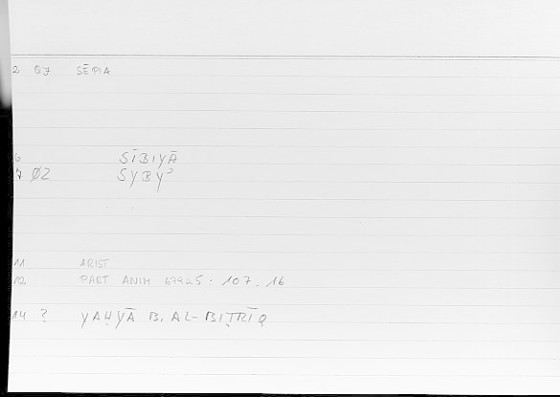 2 07 SĒPIA
6 SĪBIYĀ
7 Ø2 SYBYʾ
11 ARIST
12 PART ANIM 679a5 : 107.16
14 ? YAḤYĀ B. AL-BIṬRĪQ